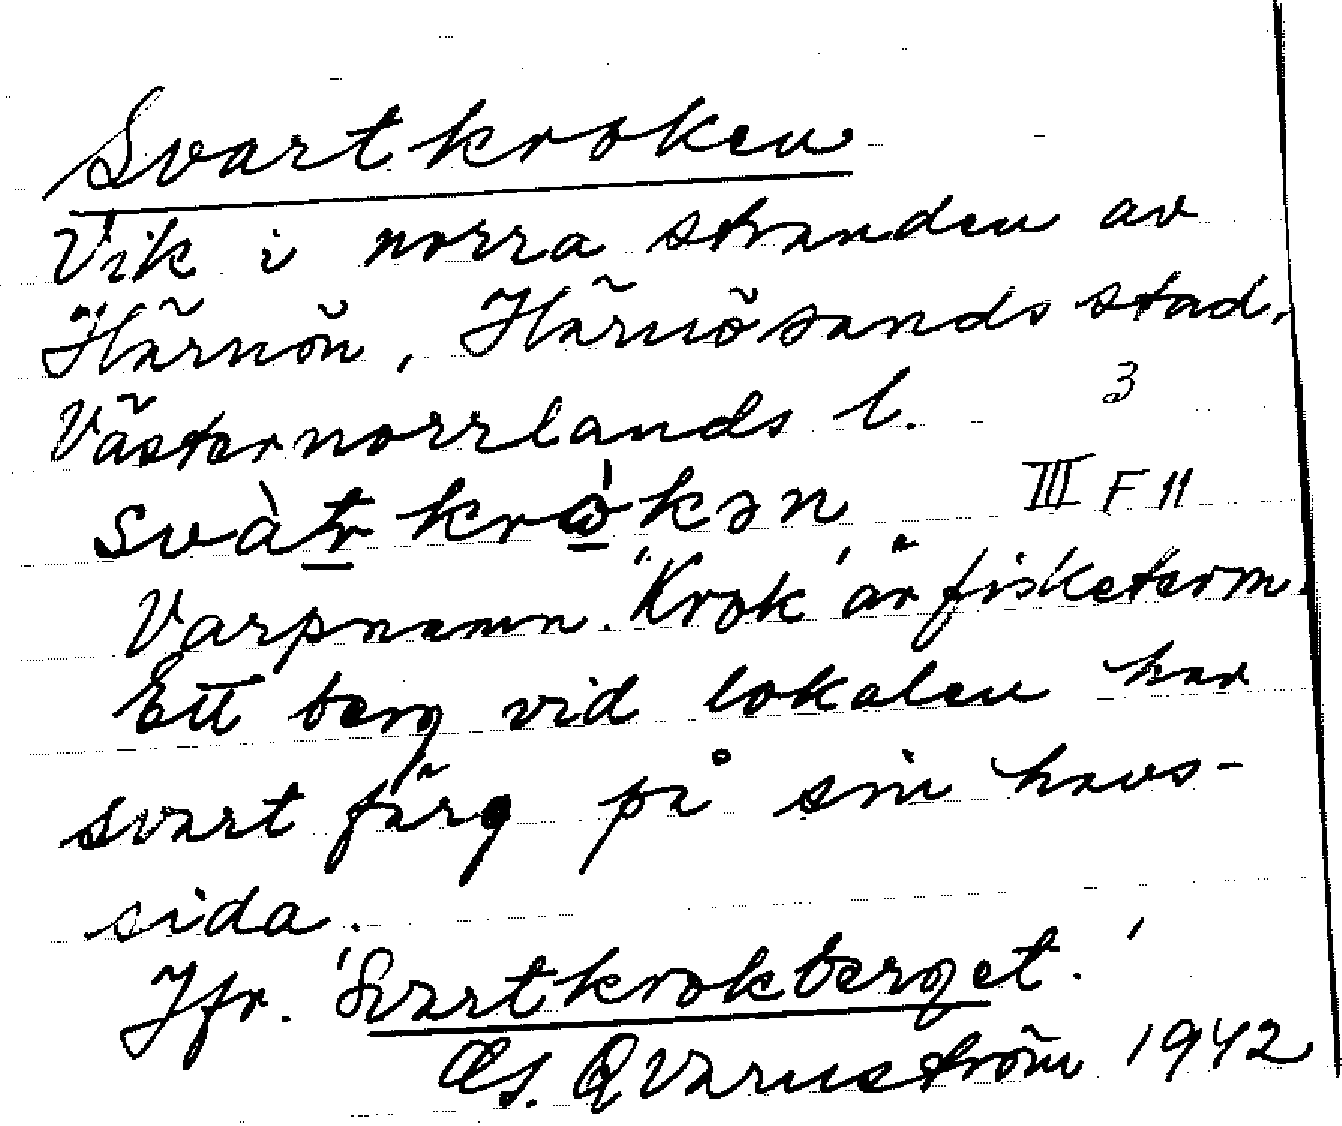 Svartkroken
Vik i norra stranden av
Härnön, Härnösands stad,
Västernorrlands l. 3
svàtr krò̱kən III F 11
Varpnamn. 'Krok' är fisketerm.
Ett berg vid lokalen har
svart färg på sin havs-
sida.
Jfr. 'Svartkrokberget.'
Qvarnström 1942